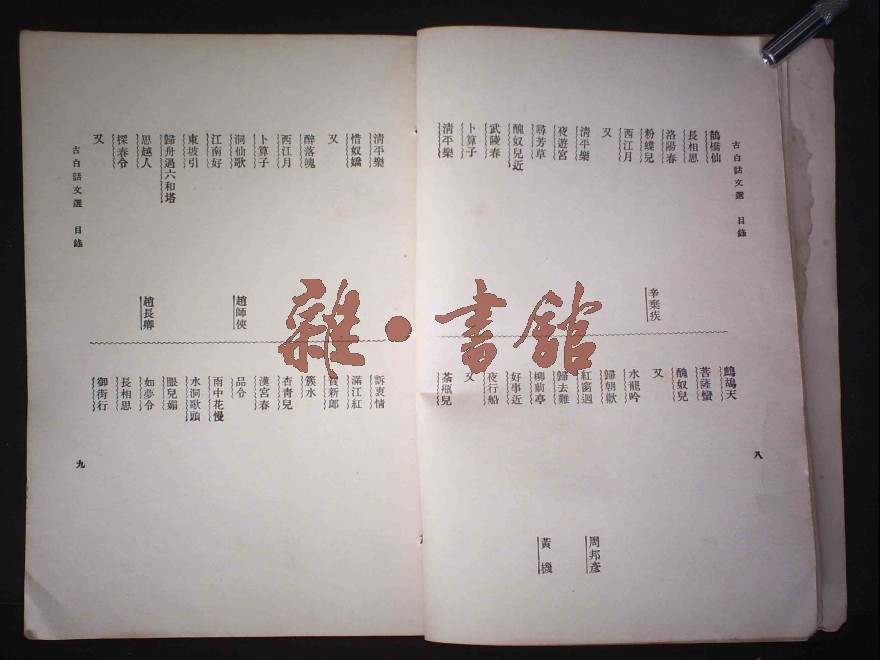 古白話文選 目錄
八
鵲橋仙
長相思
洛陽春
粉蝶兒 辛棄疾
西江月
又
清平樂
夜遊宮
尋芳草
醜奴兒近
武陵春
卜算子
清平樂
鷓鴣天
菩薩蠻
醜奴兒
又
水龍吟
歸朝歡
紅窗迥 周邦彥
歸去難
柳前亭 黃機
好事近
夜行船
又
茶瓶兒
清平樂
惜奴嬌
又
醉落魄
西江月
卜算子
洞仙歌 趙師俠
江南好
東坡引
歸舟過六和塔
思越人 趙長卿
探春令
又
訴衷情
滿江紅
賀新郎
簇水
杏青兒
漢宮春
品令
雨中花慢
水洞歌頭
眼兒媚
如夢令
長相思
御街行
古白話文選 目錄
九
雜·書館